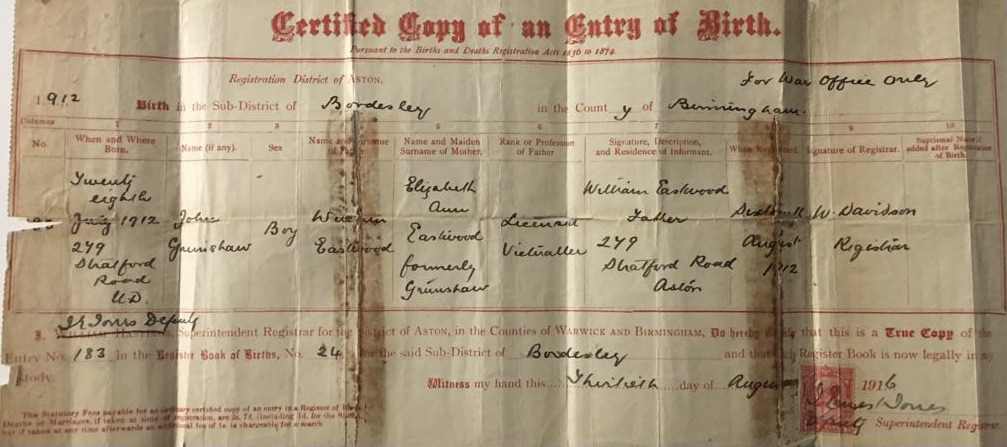 Certified Copy of an Entry of Birth.
Pursuant to the Births and Deaths Registration Acts 1836 to 1874.
Registration District of ASTON.
For War Office Only
1912 Birth in the Sub-District of Bordesley in the County of Birmingham.
Columns 1 2 3 5 6 7 8 9 10
No.
When and Where Born.
Name (if any).
Sex
Name and Surname of
Name and Maiden Surname of Mother.
Rank or Profession of Father
Signature, Description, and Residence of Informant.
When Registered.
Signature of Registrar.
Baptismal Name if added after Registration of Birth
Twenty
eighth
July 1912
279
Stratford
Road
U.D.
John
Grimshaw
Boy
William
Eastwood
Elizabeth
Ann
Eastwood
formerly
Grimshaw
Licensed
Victualler
William Eastwood
Father
279
Stratford Road
Aston
August
1912
W. Davidson
Registrar
Jones Deputy
I, WILLIAM HASTINGS, Superintendent Registrar for the District of ASTON, in the Counties of WARWICK AND BIRMINGHAM, Do hereby that this is a True Copy of the
Entry No. 183 in the Register Book of Births, No. 24 for the said Sub-District of Bordesley and that Register Book is now legally in my
custody.
Witness my hand this Thirtieth day of August 1916
James Jones
Deputy Superintendent Registrar
The Statutory Fees payable for an ordinary certified copy of an entry in a Register of
Deaths or Marriages, if taken at time of registration, are 2s. 7d. (including 1d. for the
but if taken at any time afterwards an additional fee of 1s. is chargeable for a search